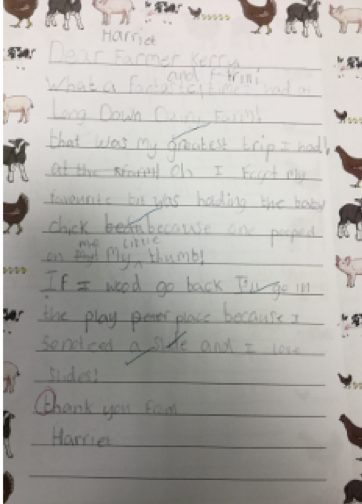 Harriet
Dear Farmer Kerr
and
What a time I had at
Long Down Dairy Farm!
that was my greatest trip I had!
at the Oh I forgot my
favourite bit was holding the baby
chick because one pooped
me little
on My thumb!
If I wood go back I'll go in
the play place because I
a slide and I love
slides!
thank you from
Harriet